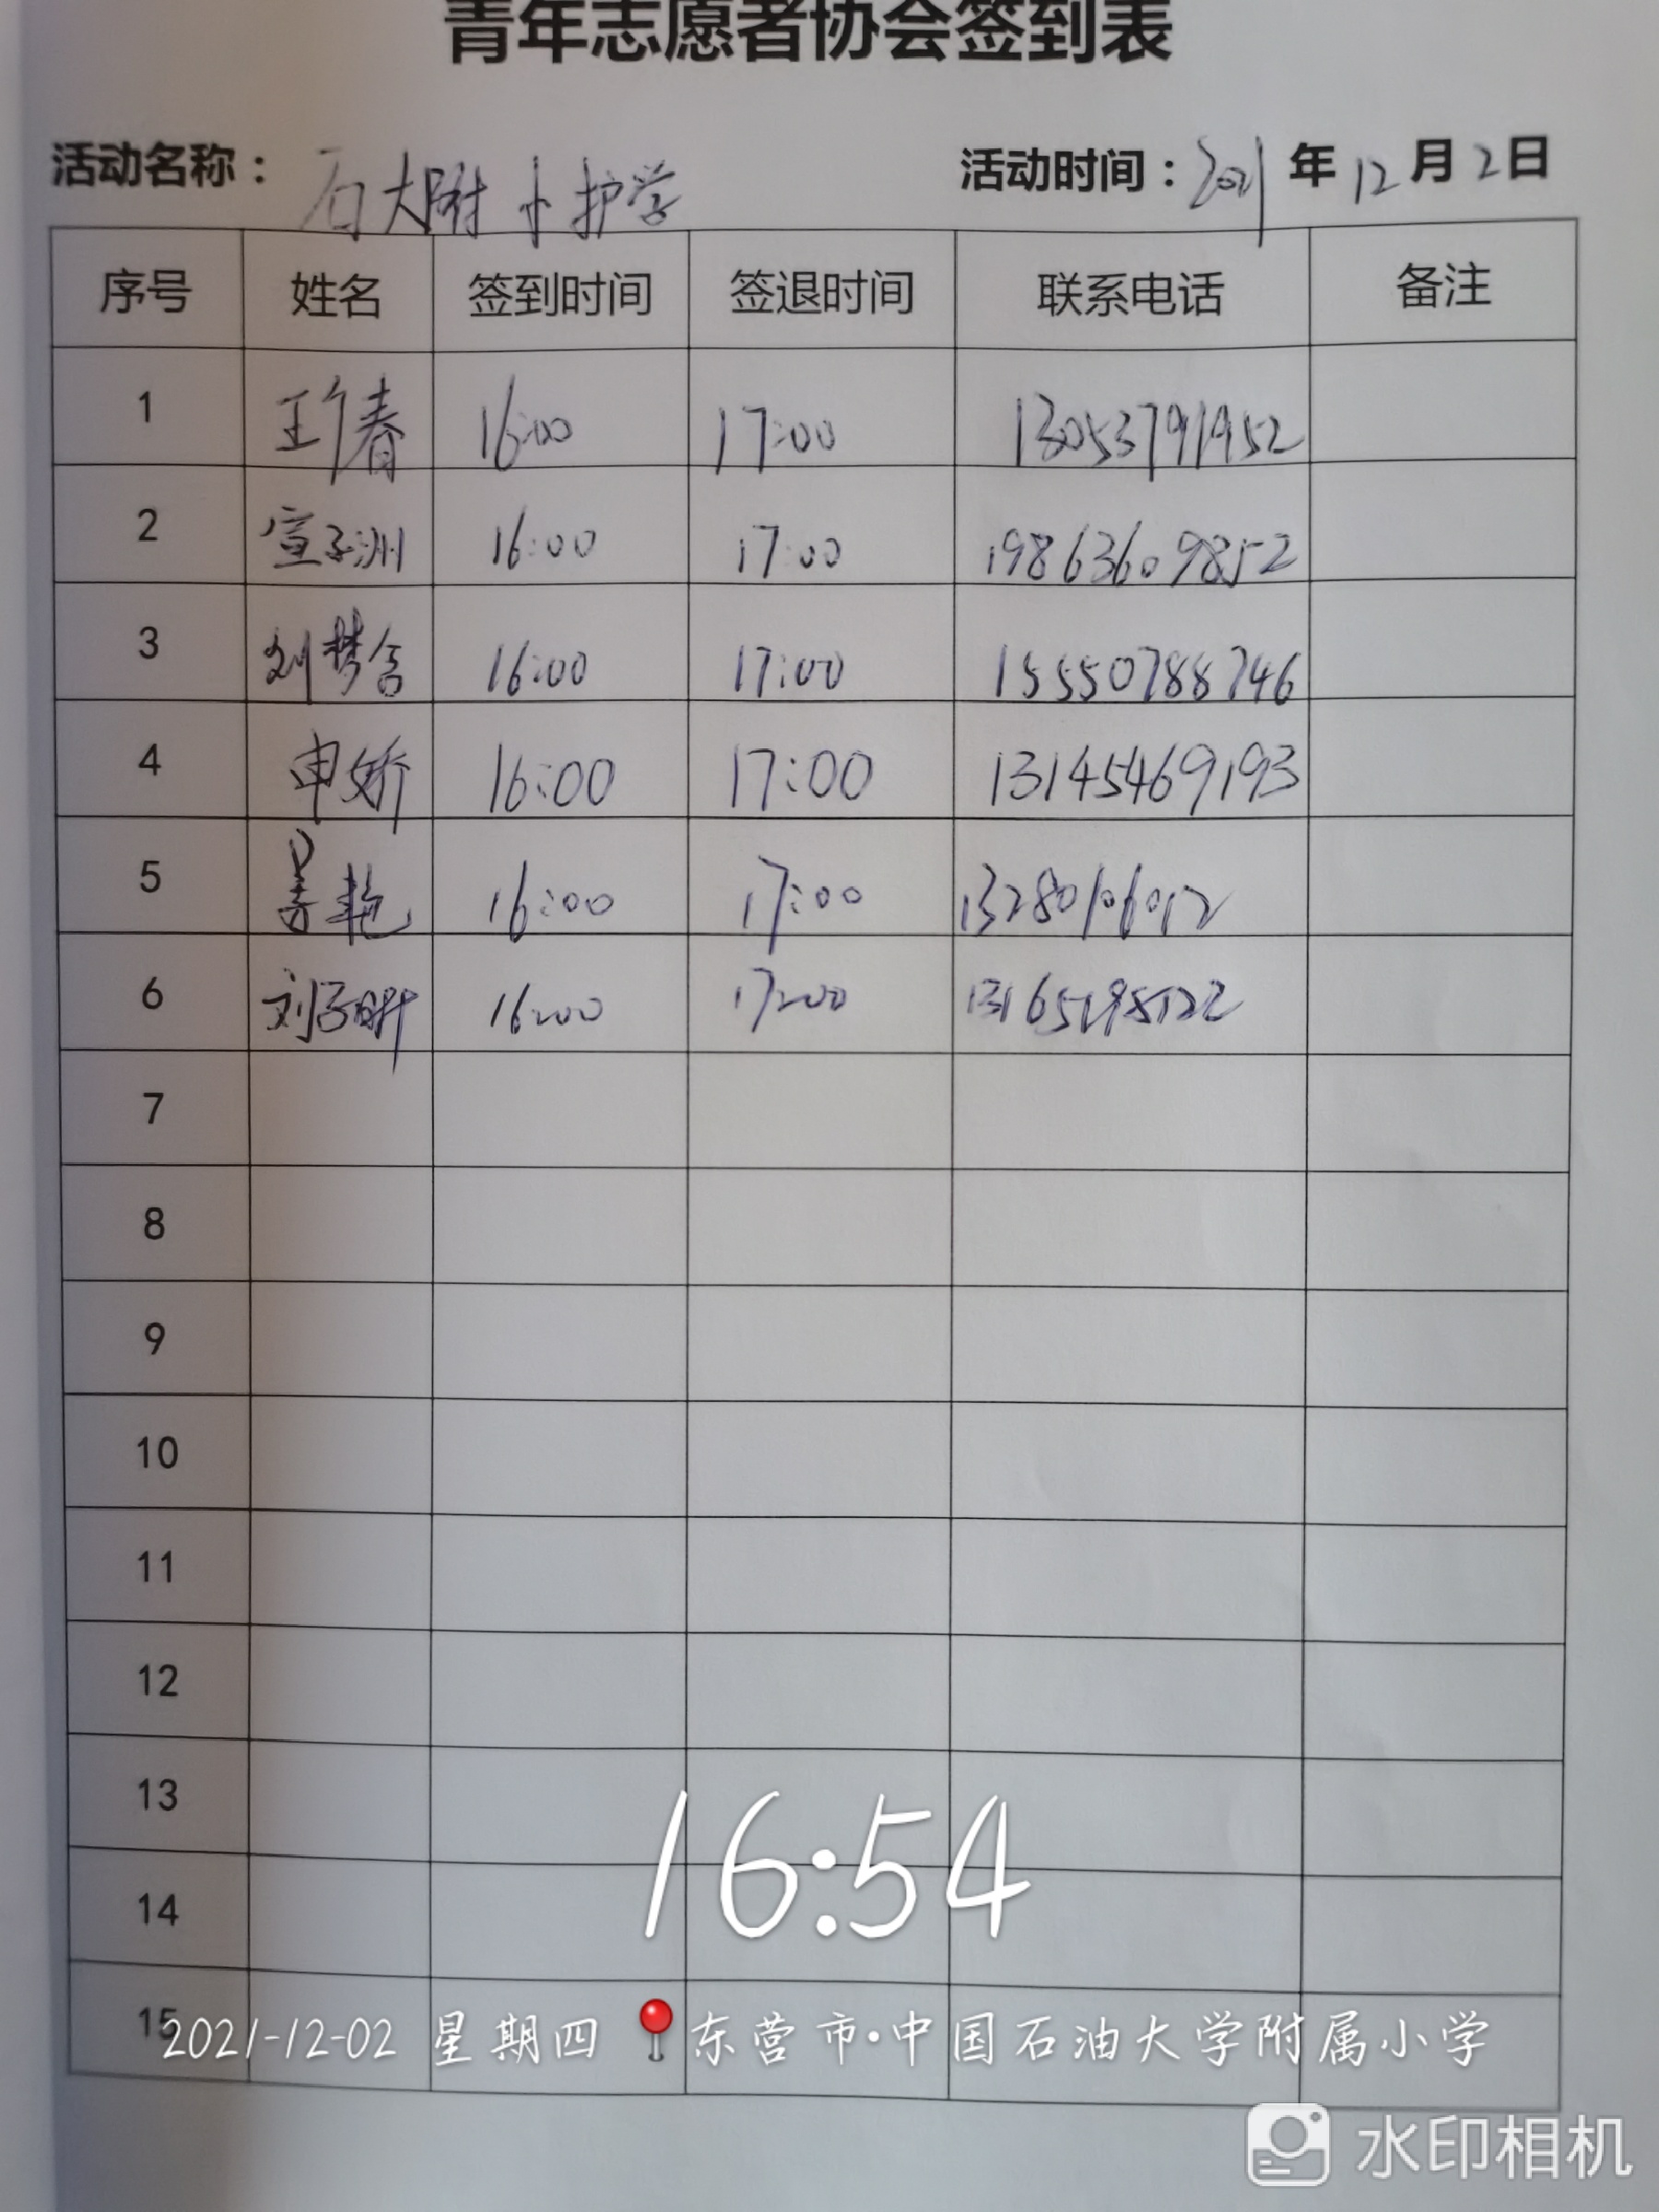 青年志愿者协会签到表
活动名称：石大附小护学 活动时间：2021年12月2日
序号 姓名 签到时间 签退时间 联系电话 备注
1 王春 16:00 17:00 13053791952
2 宣子洲 16:00 17:00 19863609852
3 刘梦含 16:00 17:00 15550788746
4 申娇 16:00 17:00 13145469193
5 姜艳 16:00 17:00 13280106012
6 刘子昕 16:00 17:00
7
8
9
10
11
12
13
16:54
14
15
2021-12-02 星期四 东营市·中国石油大学附属小学
水印相机